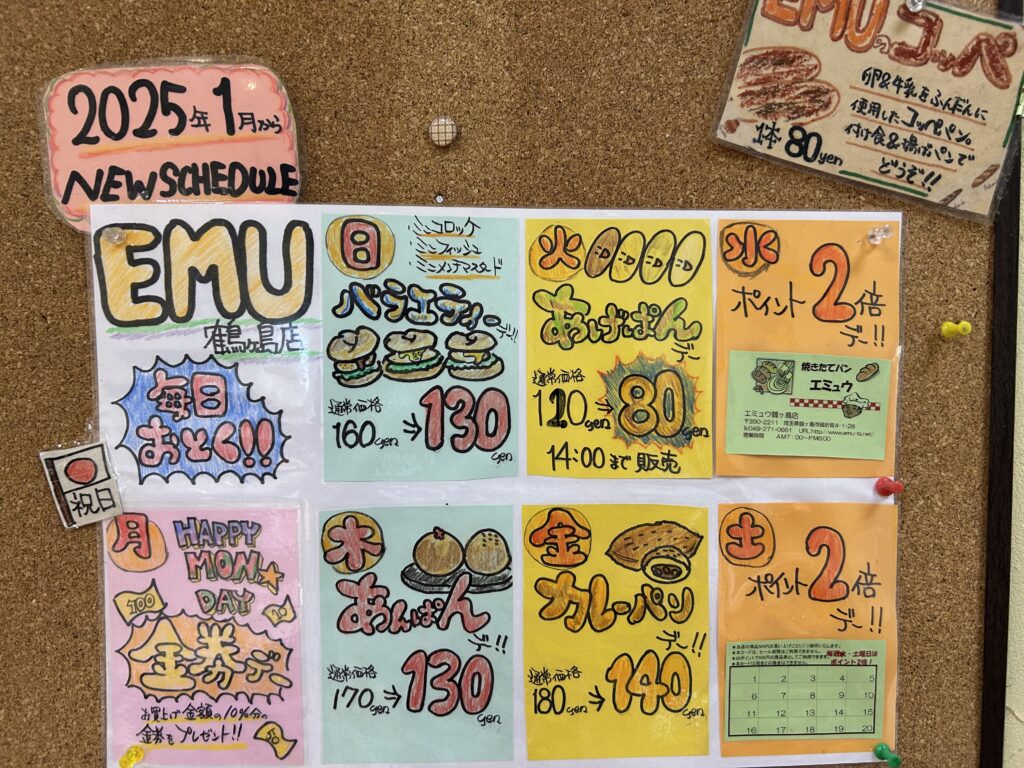 2025年1月から
NEW SCHEDULE
EMUのコッペ
卵&牛乳をふんだんに
使用したコッペパン。
付け食&揚げパンで
どうぞ!!
1本80yen
EMU
鶴ヶ島店
毎日
おとく!!
日
ミニコロッケ
ミニフィッシュ
ミニメンチマスタード
バラエティーデー!!
通常価格
160yen→130yen
火
あげぱんデー
通常価格
120yen→80yen
14:00まで販売
水
ポイント2倍
デー!!
焼きたてパン
エミュウ
エミュウ鶴ヶ島店
〒350-2211 埼玉県鶴ヶ島市脚折町4-1-28
℡049-271-0661 URL:http://www.emu-ts.net/
営業時間 AM7:00~PM6:00
祝日
月
HAPPY
MON
DAY
100
金券デー
お買上げ金額の10%分の
金券をプレゼント!!
木
あんぱん
デー!!
通常価格
170yen→130yen
金
カレーパン
デー!!
通常価格
180yen→140yen
土
ポイント2倍
デー!!
毎週水・土曜日は
ポイント2倍!
1 2 3 4 5
6 7 8 9 10
11 12 13 14 15
16 17 18 19 20